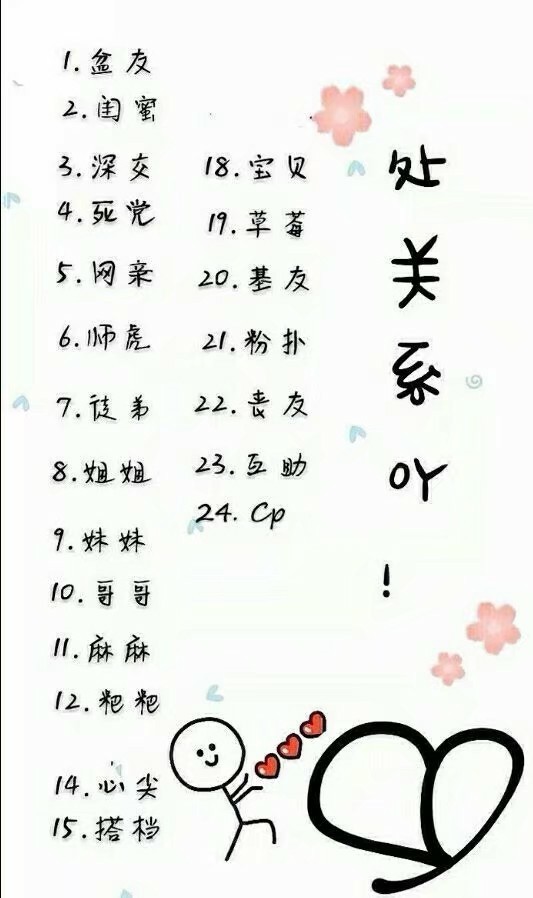 1.盆友
2.闺蜜
3.深交
4.死党
5.网亲
6.师虎
7.徒弟
8.姐姐
9.妹妹
10.哥哥
11.麻麻
12.粑粑
14.心尖
15.搭档
18.宝贝
19.草莓
20.基友
21.粉扑
22.丧友
23.互助
24.Cp
处关系吖!